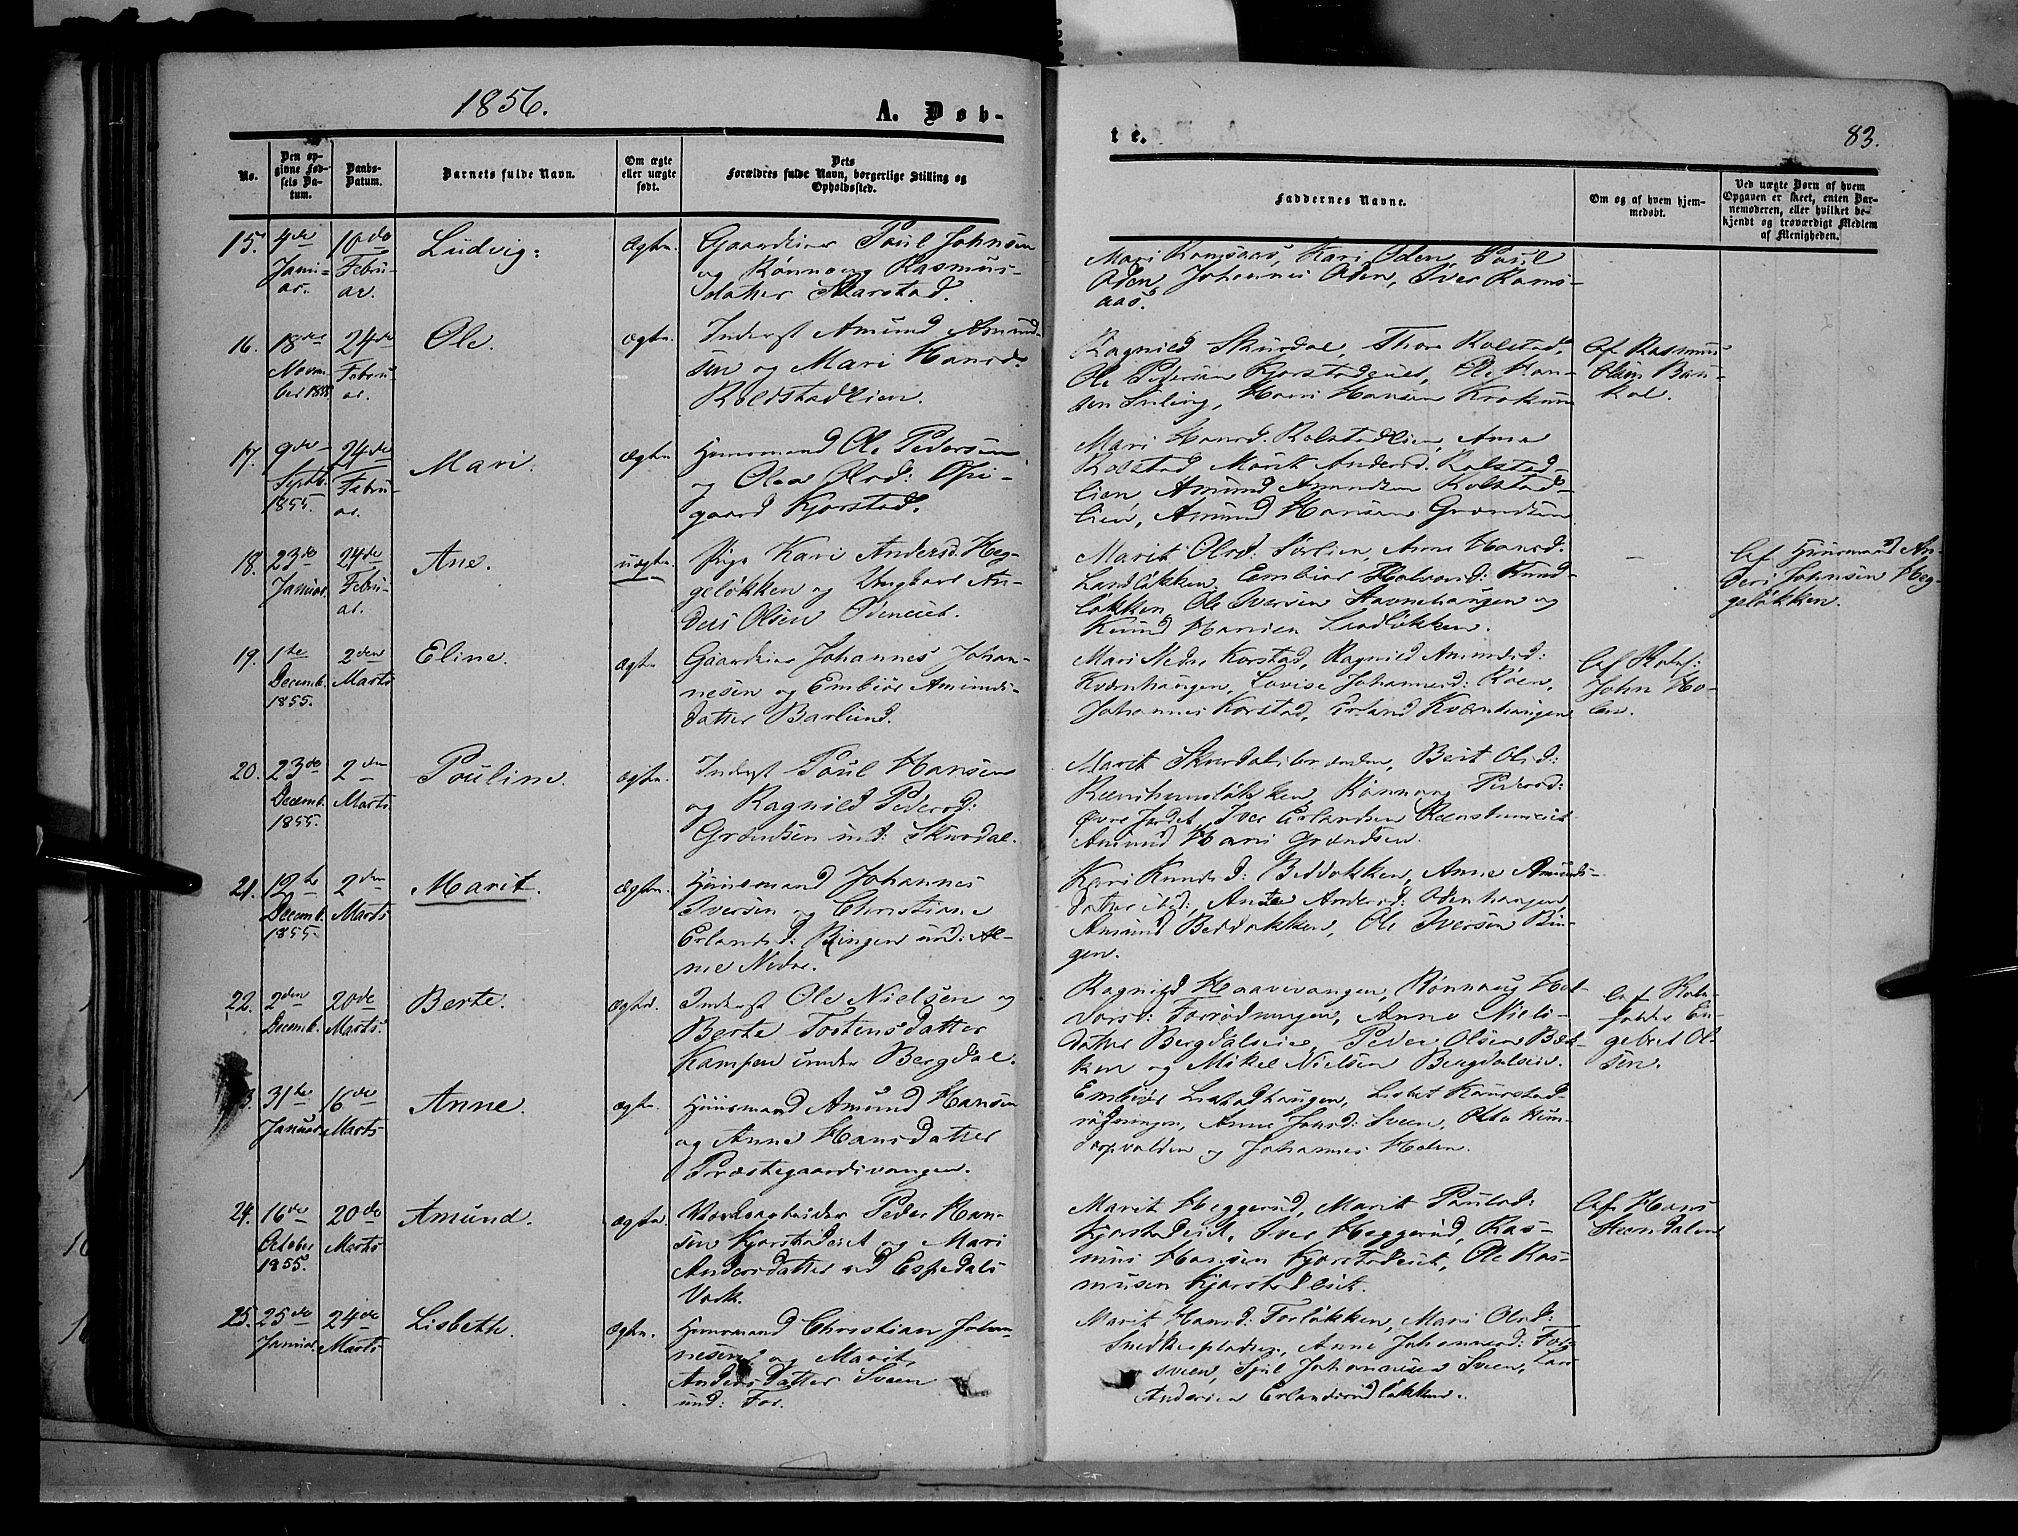 1856.
A. Døb-
te.
83.
No.
Den op-
givne Fød-
sels Da-
tum.
Daabs-
Datum.
Barnets fulde Navn.
Om ægte
eller uægte
født.
Dets
Forældres fulde Navn, borgerlige Stilling og
Opholdssted.
Faddernes Navne.
Om og af hvem hjem-
medøbt.
Ved uægte Børn af hvem
Opgaven er skeet, enten Bar-
nemoderen, eller hvilket be-
kjendt og troværdigt Medlem
af Menigheden.
15. 4de
Janu-
ar.
10de
Febru-
ar.
Ludvig:
Ægte.
Gaardeier Poul Johnsen
og Rønnaug Rasmus-
datter Skarstad.
Mari Ramsaas, Kari Oden, Poul
Oden, Johannes Oden, Iver Rams-
aas.
16. 18de
Novem-
ber 1855
24de
Febru-
ar.
Ole.
ægte.
Inderst Amund Amund-
sen og Mari Hansd.
Rolstadlien.
Ragnild Skurdal, Thore Rolstad,
Ole Pedersen Kjorstadeiet, Ole Han-
sen
Af Rasmus
Olsen
17. 9de
Septb.
1855.
24de
Febru-
ar.
Mari.
Ægte.
Huusmand Ole Pedersen
og Olea Olsd: Opi-
gaard Kjorstad.
Mari Hansd. Rolstadlien, Anne
Rolstad, Marit Andersd: Rolstad-
lien, Amund Amundsen Rolstad-
lien, Amund Hansen Grændsen
18. 23de
Januar.
24de
Febru-
ar.
Ane.
uægte.
Pige Kari Andersd. Heg-
geløkken og Ungkarl An-
ders Olsen Odeneiet.
Marit Olsd: Sørlien, Anne Hansd.
Ole Iversen Stavnehaugen og
Knud Hansen
Af Huusmand An-
ders Johnsen Heg-
geløkken.
19. 1te
Decemb.
1855.
2den
Marts
Eline.
Ægte
Gaardeier Johannes Johan-
nesen og Embiør Amunds-
datter Barlund.
Mari Nedre Korstad, Ragnild Amundsd:
Kvernhaugen, Lovise Johannesd:
Johannes Korstad, Erland Kvernhaugen
Af
John Ho-
len.
20. 23de
Decemb.
1855.
2den
Marts
Pouline.
ægte.
Inderst Poul Hansen
og Ragnild Pedersd:
Grændsen und: Skurdal.
Marit Berit Olsd:
Rønnaug Pedersd:
Øvre Jordet, Iver Erlandsen
Amund Hans Grændsen.
21. 12te
Decemb.
1855.
2den
Marts
Marit.
ægte.
Huusmand Johannes
Iversen og Christiane
Erlandsd: Ringen und: Al-
me Nedre.
Kari Knudsd: Anne Amunds-
datter ibid:, Andersd: Odenhaugen,
Amund Ole Iversen Rin-
gen.
22. 2den
Decemb.
20de
Marts.
Berte.
Ægte.
Inderst Ole Nielsen og
Berte Tostensdatter
Kampen under Bergdal.
Ragnild Haavevangen, Rønnaug Hal-
vorsd: Anne Niels-
datter Bergdalseie, Peder Olsen Bak-
ken og Mikel Nielsen Bergdalseie.
Af
En-
gebret Ol-
sen.
3. 31te
Januar
16de
Marts
Anne.
ægte.
Huusmand Amund Hansen
og Anne Hansdatter
Præstegaardsvangen.
Embiør
Anne Johsd: Sveen,
og Johannes Holen.
24. 16de
October
1855.
20de
Marts
Amund.
Ægte.
Værksarbeider Peder Han-
sen Kjorstadeiet og Mari
Andersdatter ved Espedals
Værk.
Marit Heggerud, Marit Paulsd:
Kjorstadeiet, Iver Heggerud, Ras-
mus Hansen Kjorstadeiet, Ole Ras-
musen Kjorstadeiet.
Af Hans
Steendalen
25. 25de
Januar
24de
Marts
Lisbeth.
Ægte.
Huusmand Christian Johan-
nesen og Marit
Andersdatter Sveen
und: For.
Marit Hansd: Forløkken, Mari Olsd:
Snedkerpladsen, Anne Johannesd: For-
sveen, Johannesen Sveen, Lars
Andersen Erlandsrudløkken.